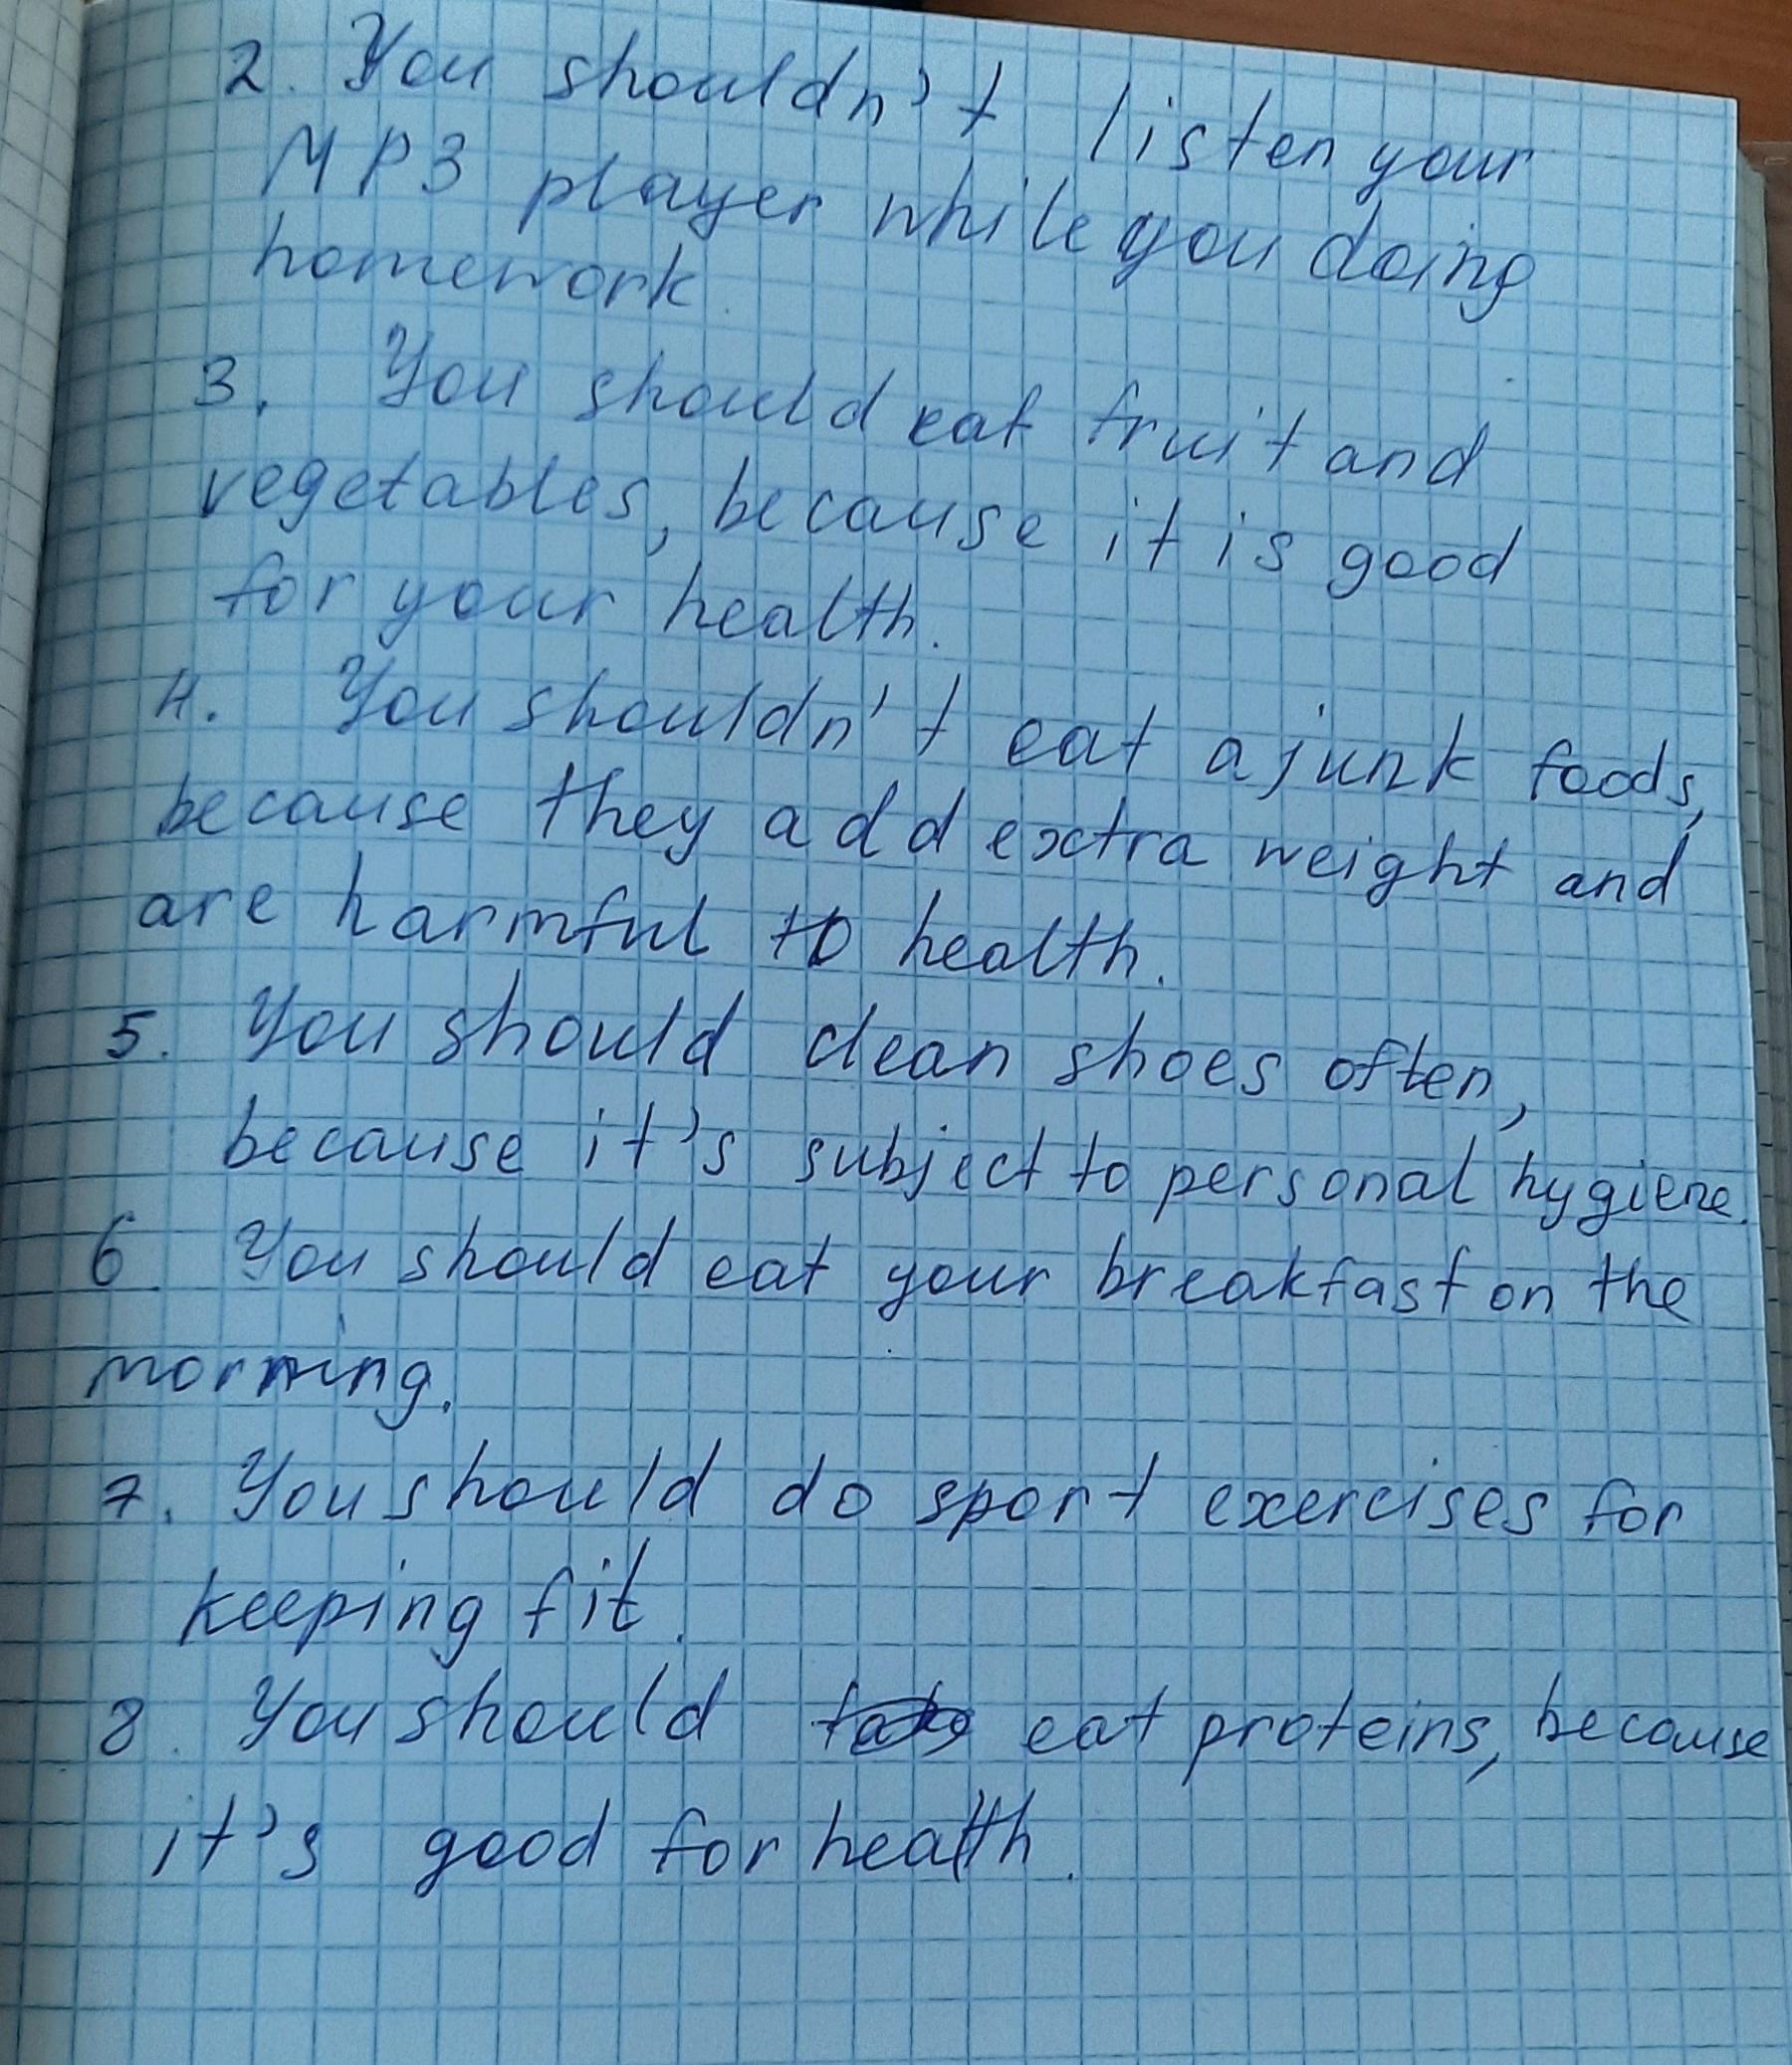 2. You shouldn't listen your
MP3 player while you doing
homework.
3. You should eat fruit and
vegetables, because it is good
for your health.
4. You shouldn't eat a junk foods,
because they add extra weight and
are harmful to health.
5. You should clean shoes often,
because it's subject to personal hygiene.
6. You should eat your breakfast on the
morning.
7. You should do sport exercises for
keeping fit.
8. You should eat proteins, because
it's good for health.